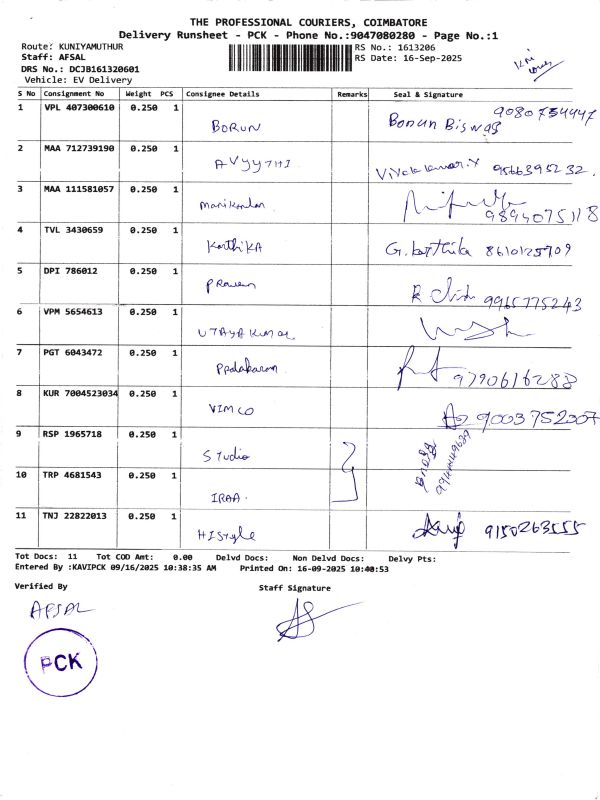 THE PROFESSIONAL COURIERS, COIMBATORE
Delivery Runsheet - PCK - Phone No.:9047080280 - Page No.:1
Route: KUNIYAMUTHUR
RS No.: 1613206
Staff: AFSAL
RS Date: 16-Sep-2025
DRS No.: DCJB161320601
Vehicle: EV Delivery
S No Consignment No Weight PCS Consignee Details Remarks Seal & Signature
1 VPL 407300610 0.250 1 BORUN Borun Biswas 9080754447
2 MAA 712739190 0.250 1 AVYYTHI 9566395232.
3 MAA 111581057 0.250 1 Manikandan 9894075118
4 TVL 3430659 0.250 1 KarthiKA G. karthika 8610125709
5 DPI 786012 0.250 1 Praveen 9965775243
6 VPM 5654613 0.250 1 UTAYAKUMAR
7 PGT 6043472 0.250 1 9790616288
8 KUR 7004523034 0.250 1 VIMCO 9003752007
9 RSP 1965718 0.250 1 STudio
10 TRP 4681543 0.250 1 IRAA.
11 TNJ 22822013 0.250 1 HIStyle 9150263555
Tot Docs: 11 Tot COD Amt: 0.00 Delvd Docs: Non Delvd Docs: Delvy Pts:
Entered By :KAVIPCK 09/16/2025 10:38:35 AM Printed On: 16-09-2025 10:40:53
Verified By Staff Signature
AFSAL
PCK